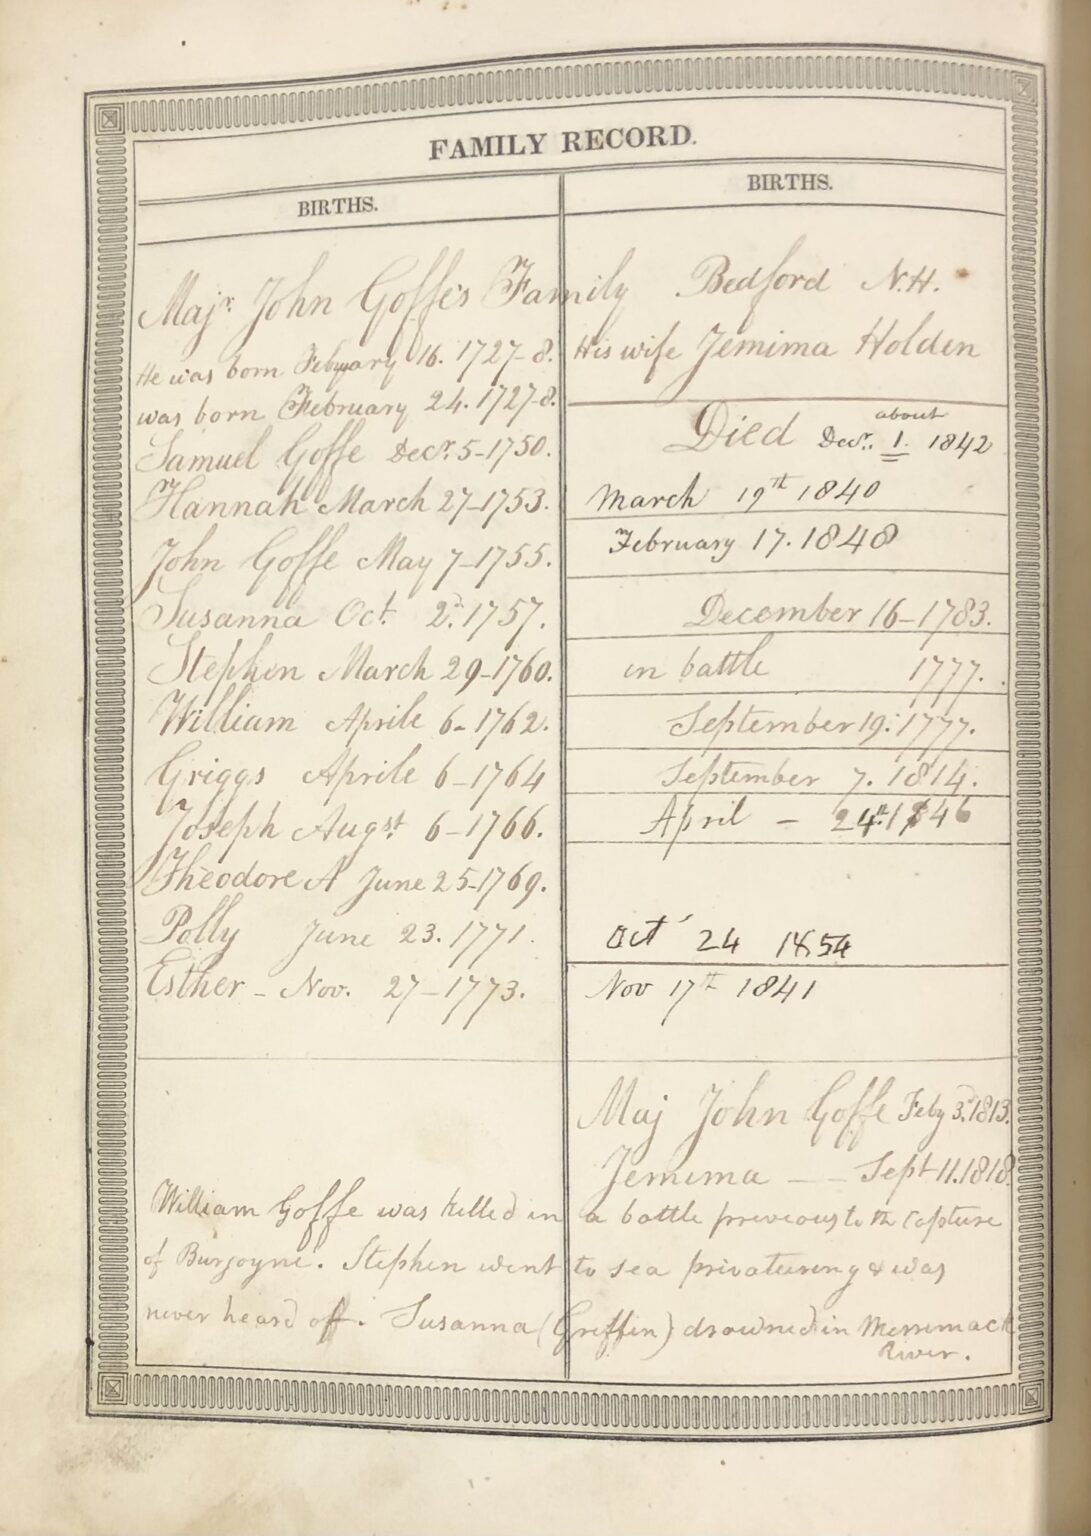 FAMILY RECORD.
BIRTHS. BIRTHS.
Majr. John Goffe's Family Bedford N.H.
He was born February 16. 1727-8. His wife Jemima Holden
was born February 24. 1727-8.
Samuel Goffe Decr. 5-1750. Died Decr. about 1. 1842
Hannah March 27-1753. March 19th 1840
John Goffe May 7-1755. February 17. 1848
Susanna Oct. 2d. 1757. December 16-1783.
Stephen March 29-1760. in battle 1777.
William Aprile 6-1762. September 19. 1777.
Griggs Aprile 6-1764 September 7. 1814.
Joseph Augst 6-1766. April - 24th. 1846
Theodore A June 25-1769.
Polly June 23. 1771. Oct 24 1854
Esther - Nov. 27-1773. Nov 17th 1841
Maj John Goffe Feby 3d. 1813.
Jemima - - Sept 11. 1818.
William Goffe was killed in a battle previous to the Capture
of Burgoyne. Stephen went to sea privateering & was
never heard off. Susanna (Griffin) drowned in Merrimack
River.